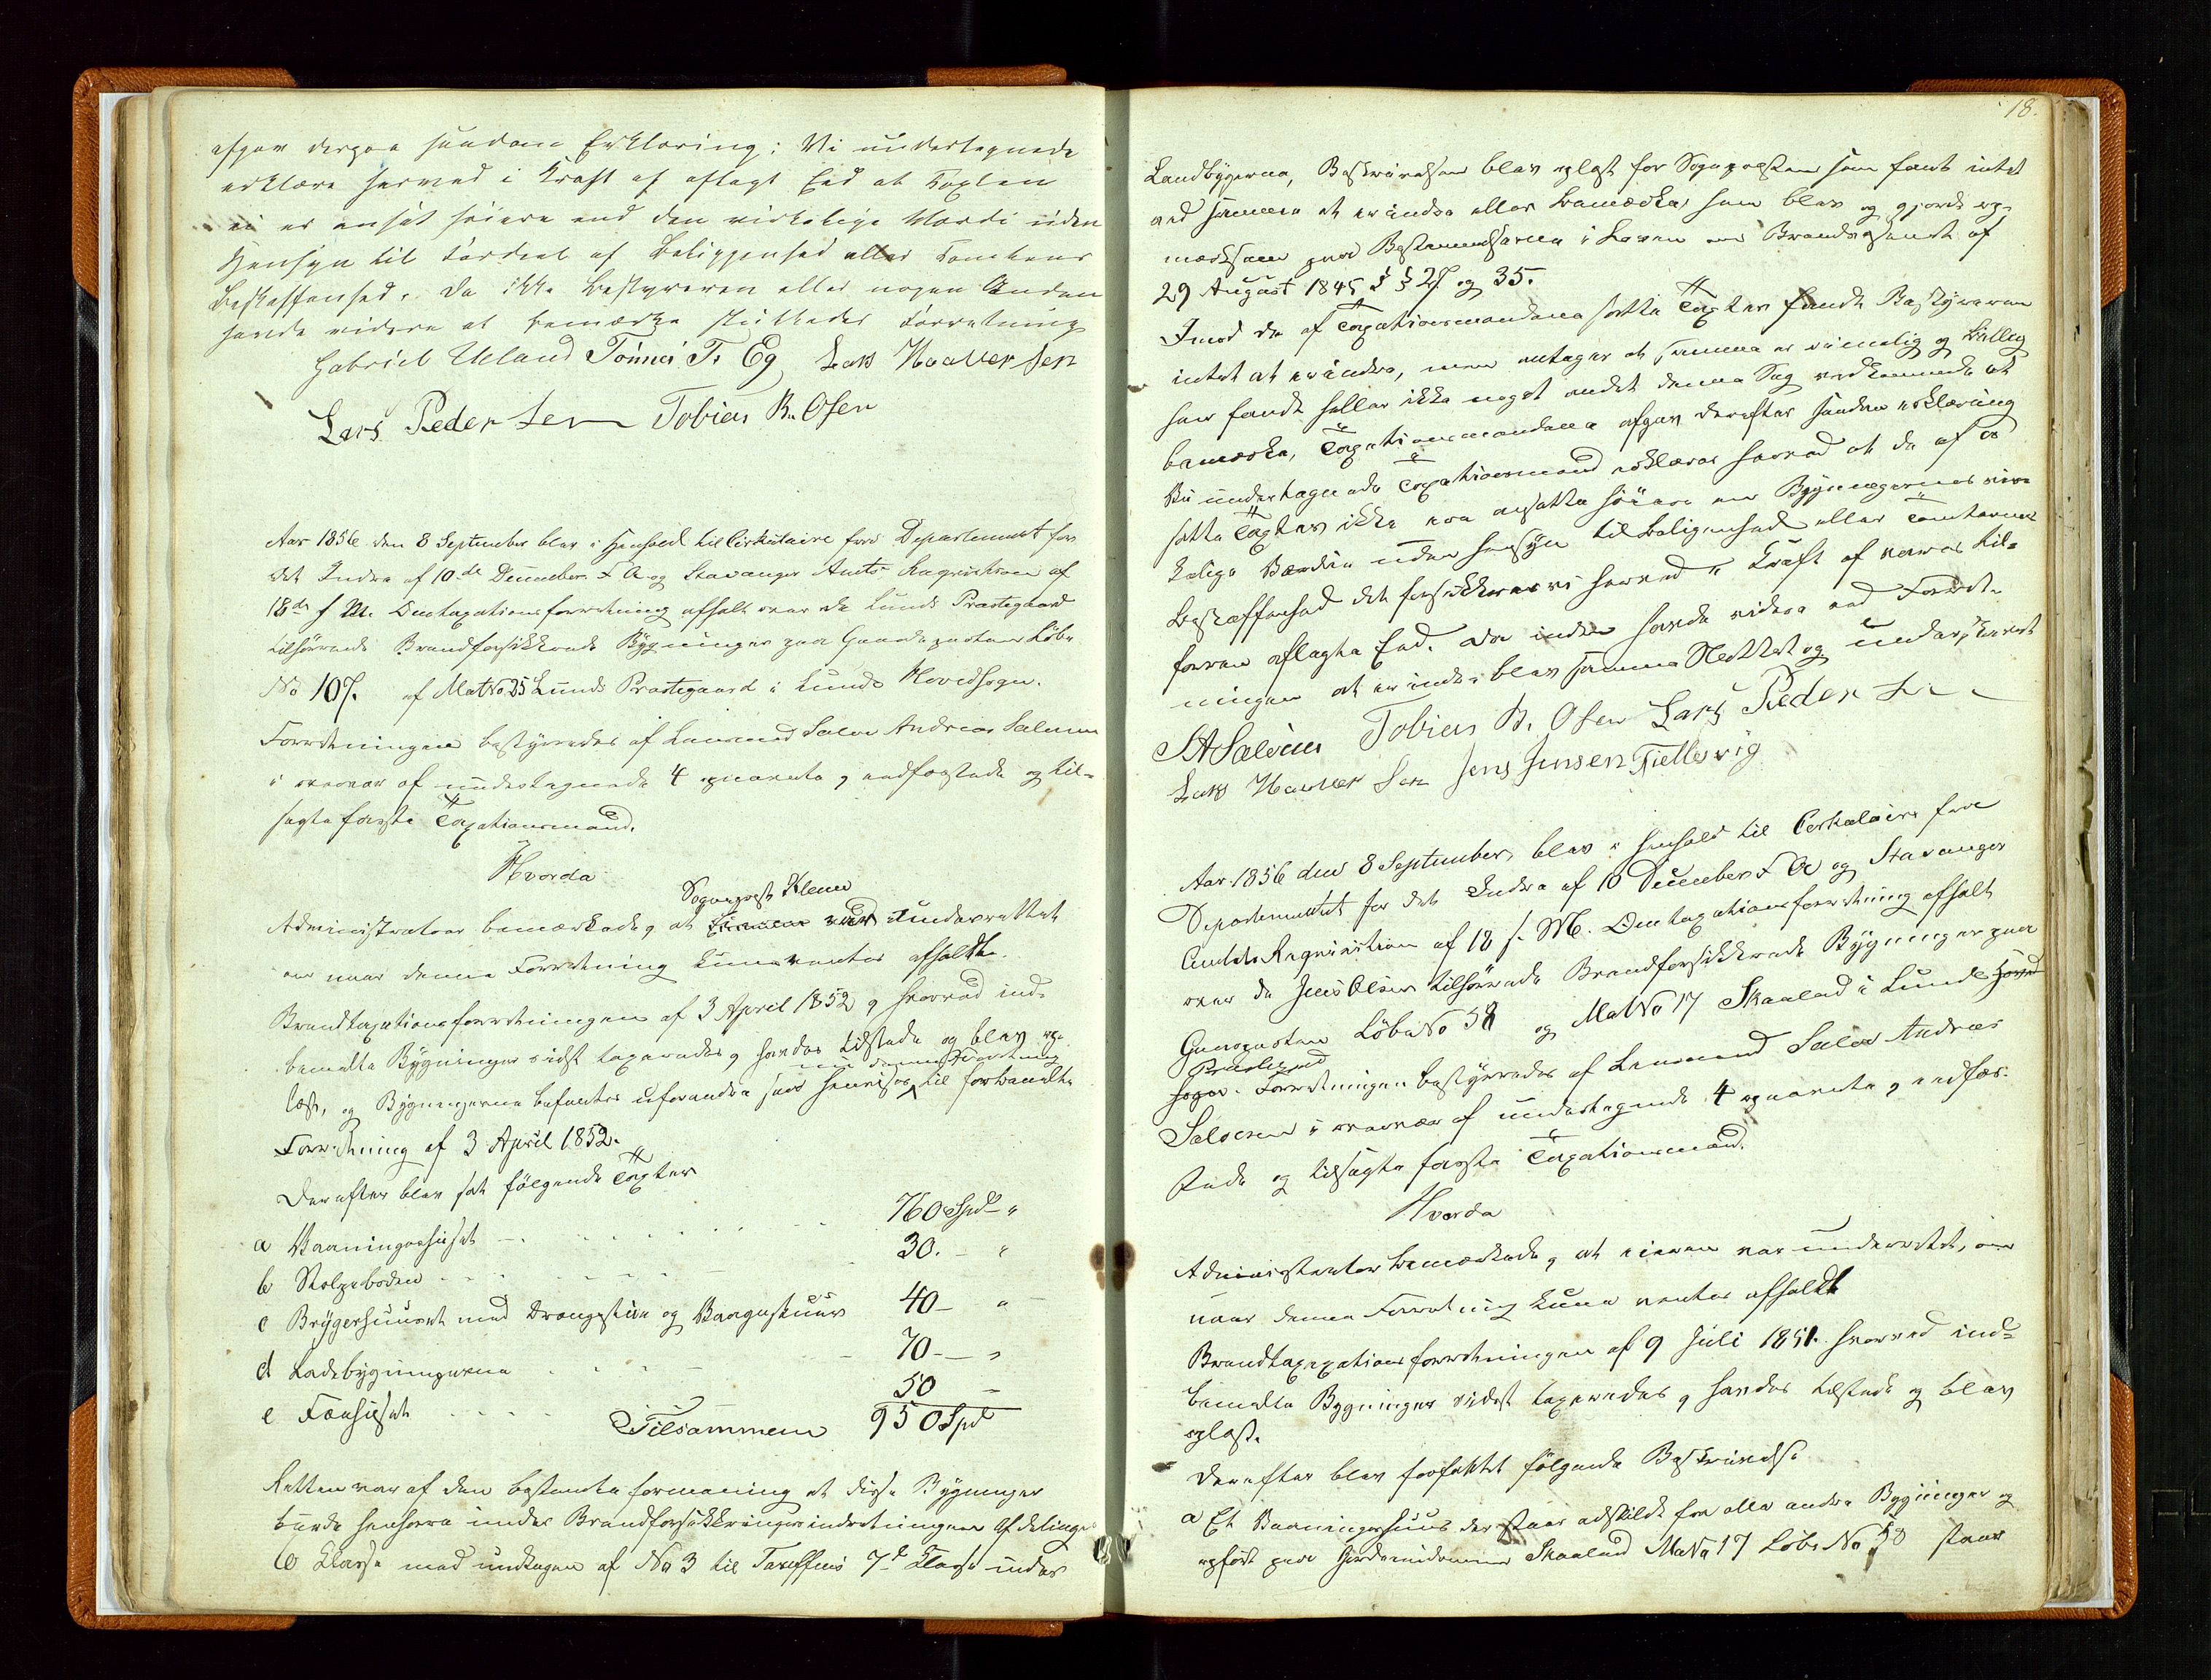 afgav derpaa saadan Erklæring: Vi undertegnede
erklære herved i Kraft af aflagt Eed at Taxten
ei er ansat høiere end den virkelige Værdi uden
Hensyn til Fordeel af Beliggenhed eller Tomtens
Beskaffenhed. Da ikke Bestyreren eller nogen Anden
havde videre at bemærke sluttedes Forretning
Gabriel Ueland Tønnes T. Eg Lars Haaversen
Lars Pedersen Tobias B. Osen
Aar 1856 den 8 September blev i Henhold til Cirkulaire fra Departementet for
det Indre af 10de December f A og Stavanger Amts Reqvisition af
18de f M. Omtaxationsforretning afholdt over de Lunds Præstegaard
tilhørende Brandforsikkrede Bygninger paa Gaardeparten Løbe
No 107. af MatNo 25 Lunds Præstegaard i Lunds Hovedsogn.
Forretningen bestyredes af Lensmand Salve Andreas Salvesen
i overvær af undertegnede 4 opnævnte, edfæstede og til-
sagte faste Taxationsmænd.
Hvorda
Sognepræst Klem
Administrator bemærkede, at Eieren var underrettet
om naar denne Forretning kunde ventes afholdt.
Brandtaxationsforretningen af 3 April 1852, hvorved ind-
bemeldte Bygninger sidst taxeredes, havdes tilstede og blev op-
læst, og Bygningerne befantes uforandre som henvises til forbemeldte
Forretning af 3 April 1852.
Derefter blev sat følgende Taxter
a Vaaningshuset 760 Spd "
b Stolpeboden 30. - "
c Bryggerhuuset med Drengestue og Vaagnskuur 40 - "
d Ladebygningerne 70 - "
e Fæhuset 50 -
Tilsammen 950 Spd
Retten var af den bestemte formening at disse Bygninger
burde henhøre under Brandforsikkringsindretningens Afdelings
6 Klasse med undtagen af No 3 til Tariffens 7de Klasse under
18.
Landbygderne, Beskrivelsen blev oplæst for Sognepræsten som fant intet
ved samme at erindre eller bemærke, som blev og gjordt op-
mærksom paa Bestemmelserne i Loven om Brandvæsenet af
29 August 1845 § § 27 og 35.
Imod de af Taxationsmændene satte Taxter fandt Bestyreren
intet at erindre, men antager at samme er rimelig og billig
han fandt heller ikke noget andet denne Sag vedkommende at
bemærke, Taxationsmændene afgav derefter saadan erklæring
Vi undertegnede Taxationsmænd erklærer herved at de af os
satte Taxter ikke ere ansatte høiere en Bygningernes vir-
kelige Værdie uden hensyn til beligenhed eller Tomternes
beskaffenhed det forsikkrer vi herved i Kraft af vores til-
forren aflagte Eed. Da inden havde videre ved Forret-
ningen at erindre blev samme Sluttet og underskrevet
SASalvesen Tobias B. Osen Lars Pedersen
Lars Haaversen Jens Jensen Fiellesvig
Aar 1856 den 8 September, blev i henhold til Cirkulaire fra
Departementet for det Indre af 10 December f A og Stavanger
Amts Reqvisition af 18 f. M. Omtaxationsforretning afholdt
over de Jens Olsen tilhørende Brandforsikkrede Bygninger paa
Gaarparten LøbeNo 58 og MatNo 17 Skaaland i Lunde Hoved
Præstegield
sogn. Forretningen bestyredes af Lensmand Salve Andreas
Salvesen i overvær af undertegnede 4 opnævnte, edfæs-
stede og tilsagte faste Taxationsmænd.
Hvorda
Administrator bemærkede, at eieren var underrettet, om
naar denne Forretning kune ventes afholdt
Brandtaxationsforretningen af 9 Juli 1851. hvorved ind-
bemeldte Bygninger sidst taxeredes, havdes tilstede og blev
oplæst.
Derefter blev forfattet følgende Beskrivelse
a Et Vaaningshuus der staar adskildt fra alle andre Bygninger og
opført paa Gaardeiendommen Skaaland MatNo 17 Løbe No 58 staar